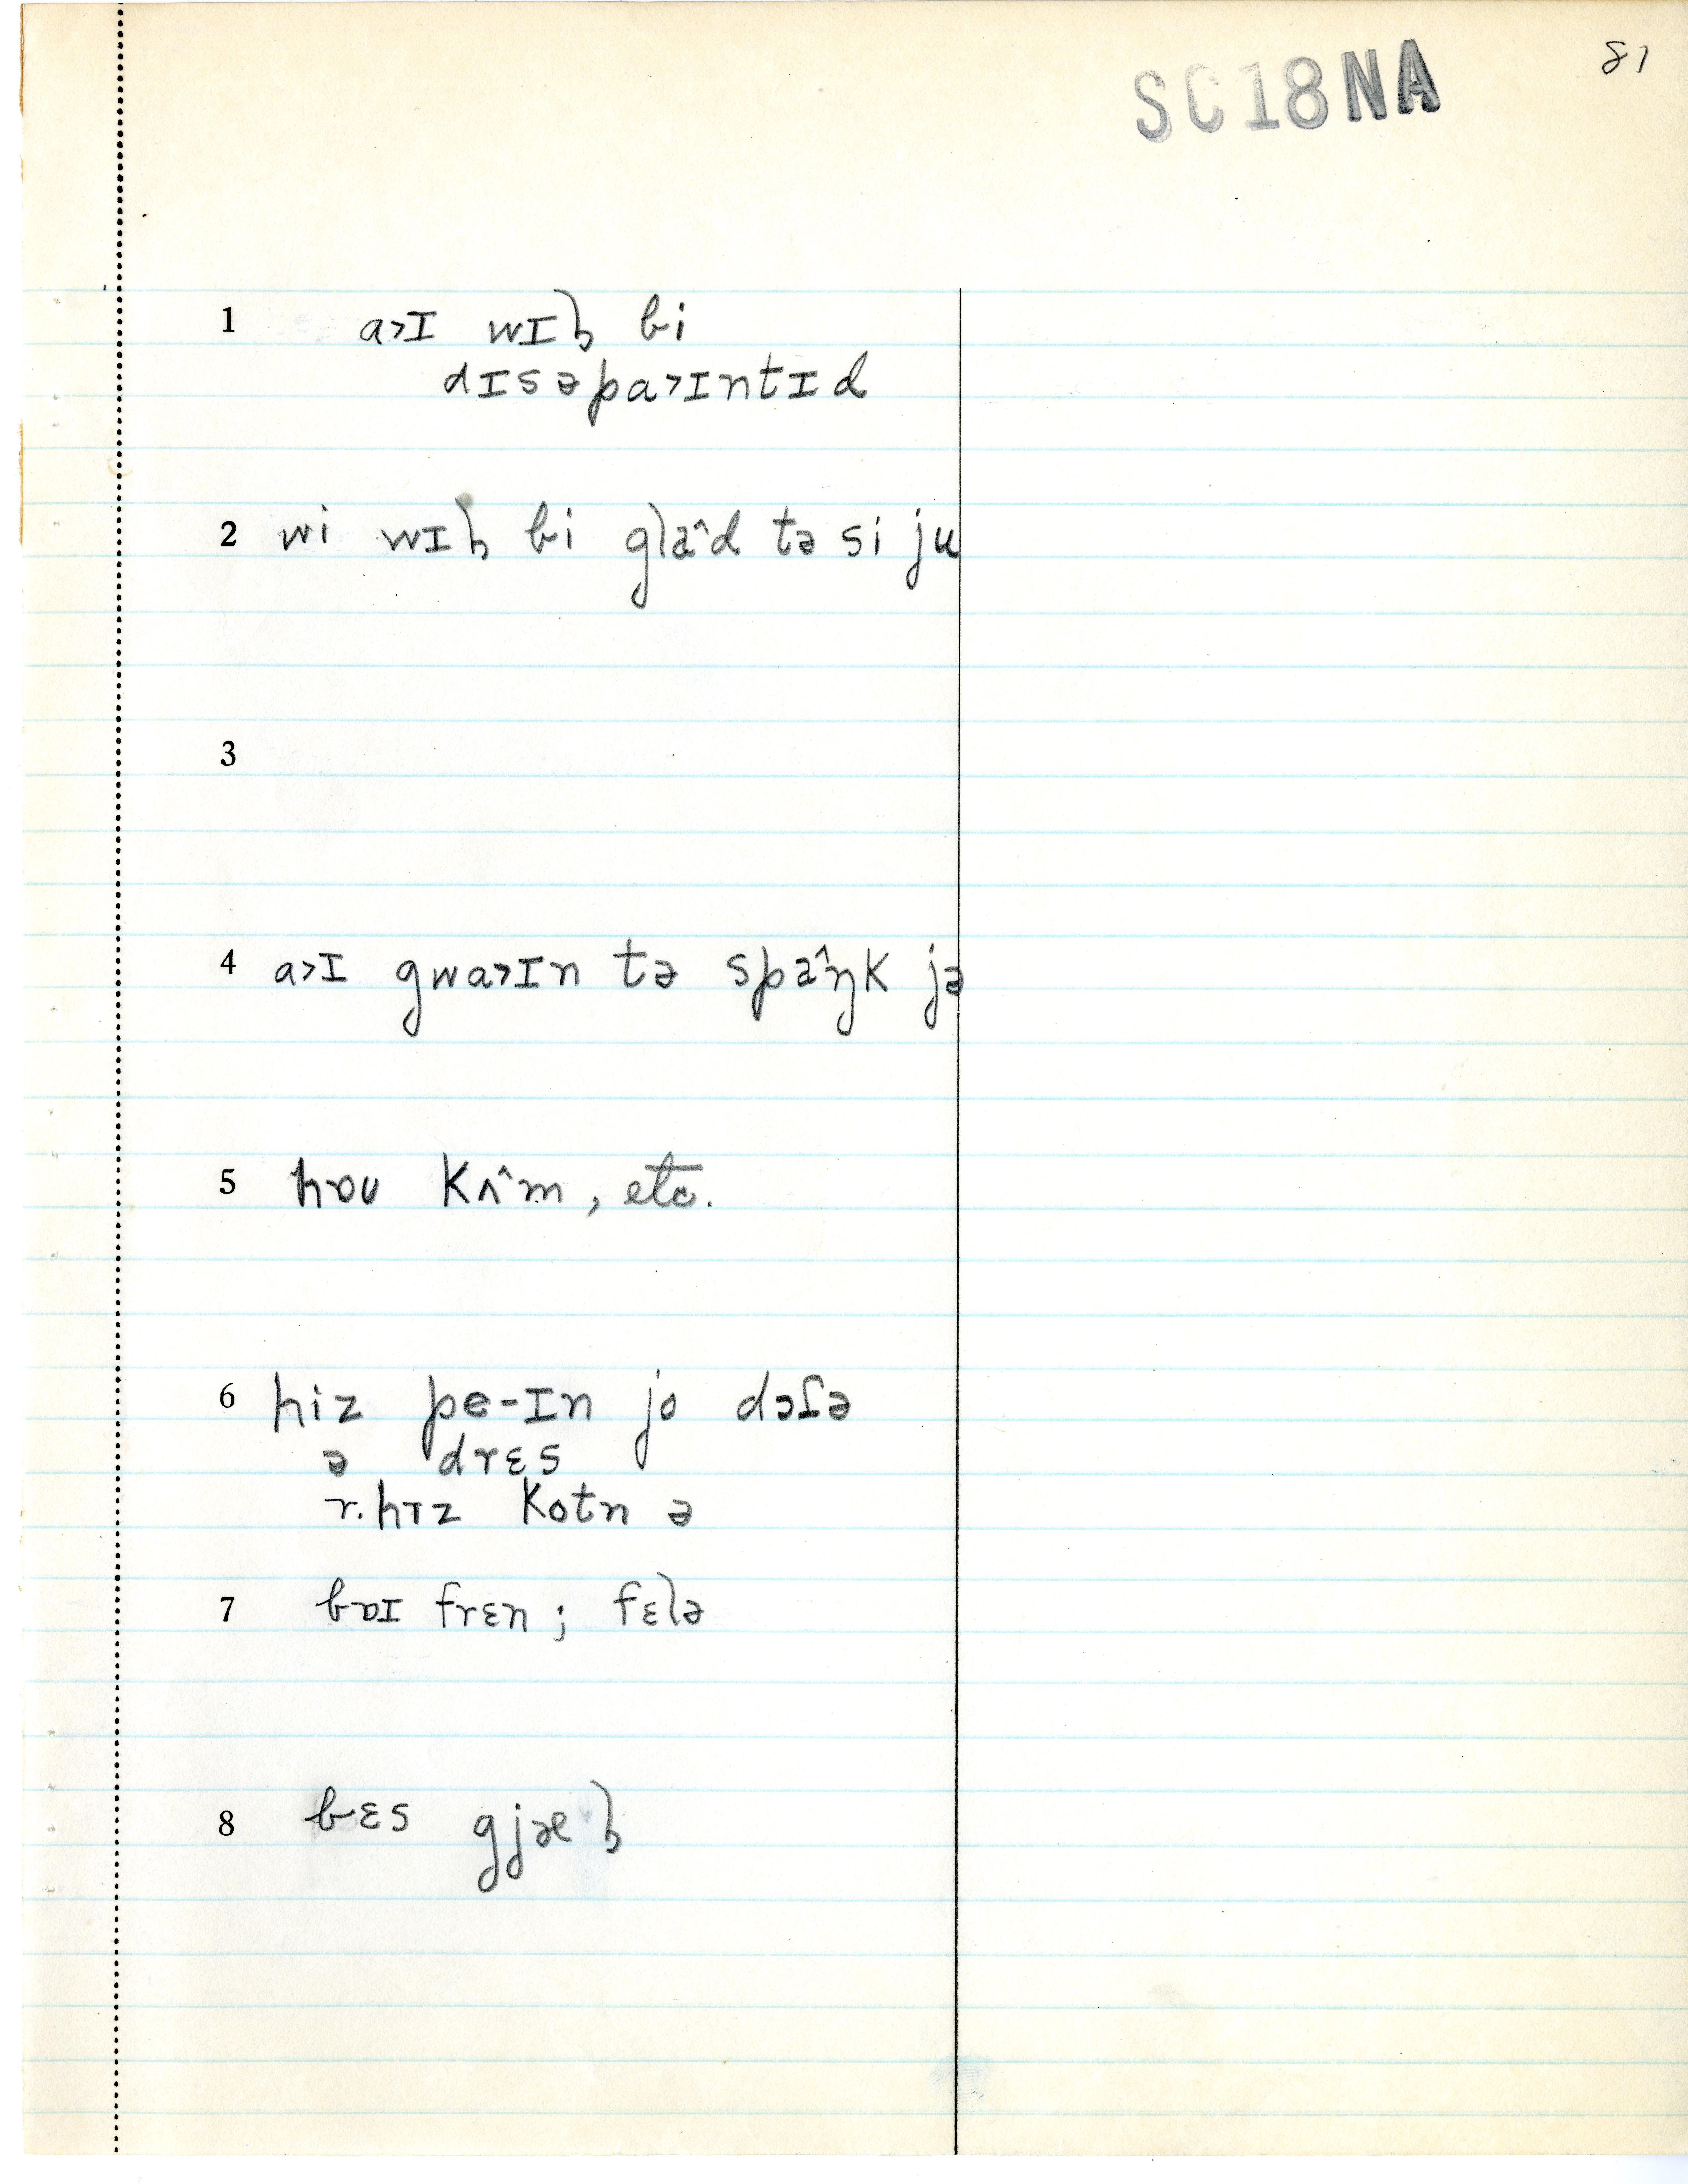 SC18NA
81
1 a˃ɪ wɪɫ bi
dɪsəpa˃ɪntɪd
2 wi wɪɫ bi gla^d tə si ju
3
4 a˃ɪ gwa˃ɪn tə spa^ŋk jə
5 hɒʊ kʌ^m, etc.
6 hiz pe-ɪn jo dɔʃə
ə drɛs
r. hɪz kotn ə
7 bɒɪ frɛn; fɛlə
8 bɛs gjæɫ